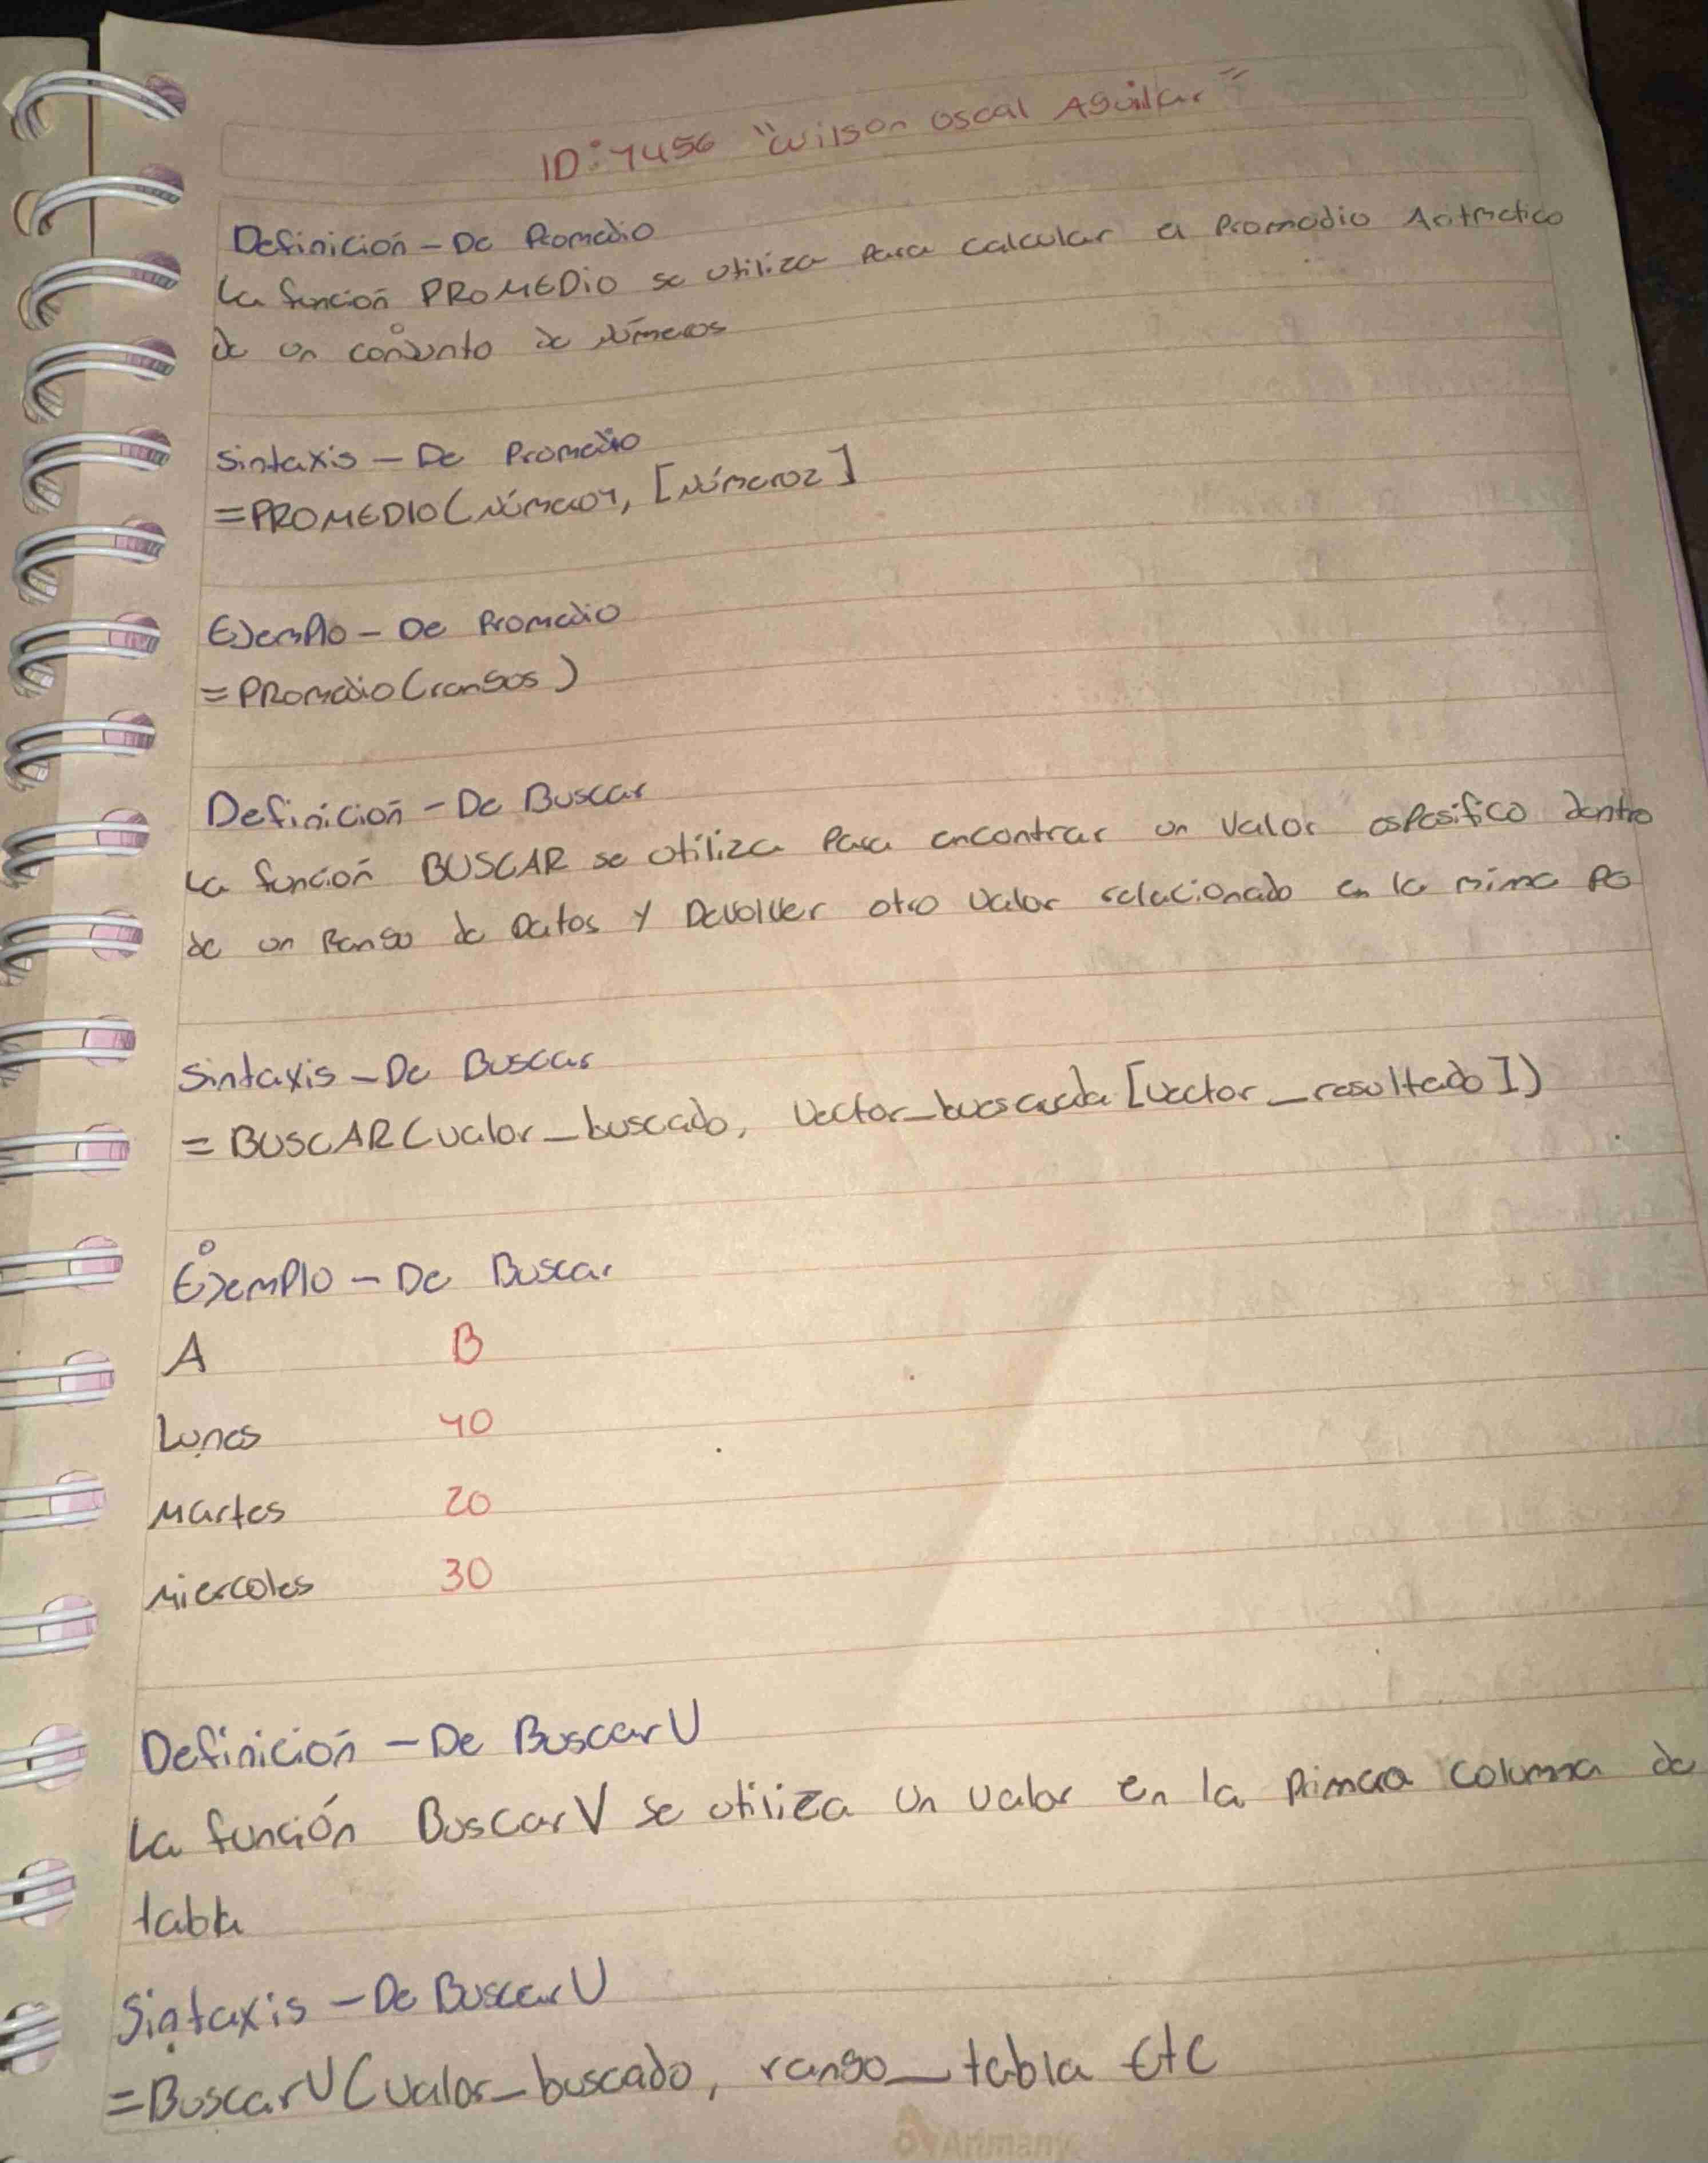 ID: 1456 "Wilson Oscal Aguilar"
Definición - De Promedio
La función PROMEDIO se utiliza para calcular el Promedio Aritmetico
de un conjunto de números
Sintaxis - De Promedio
=PROMEDIO(Número1, [Número2]
Ejemplo - De Promedio
=PROMedio(rangos)
Definición - De Buscar
La función BUSCAR se utiliza Para encontrar un Valor espesifico dentro
de un Rango de Datos y Devolver otro valor relacionado en la mima Po
Sintaxis - De Buscar
=BUSCAR(valor_buscado, Vector_buscada[vector_resultado])
Ejemplo - De Buscar
A B
Lunes 10
Martes 20
Miercoles 30
Definición - De BuscarV
La función BuscarV se utiliza un valor en la primera columna de
tabla
Sintaxis - De BuscarV
=BuscarV(valor_buscado, rango_tabla Etc
Arimany